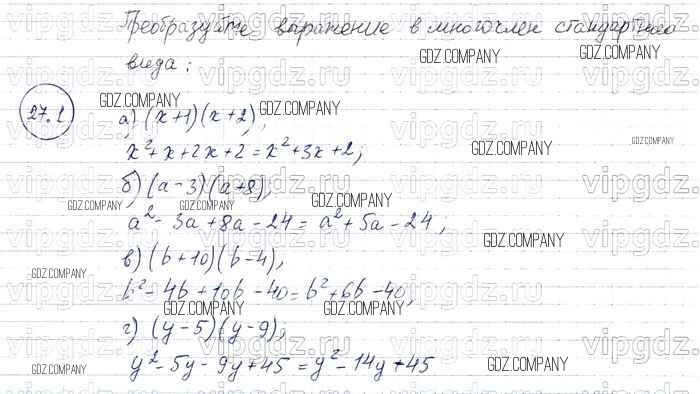 Преобразуйте выражение в многочлен стандартного
вида:
GDZ.COMPANY
27.1
а) (x+1)(x+2),
x²+x+2x+2=x²+3x+2;
б) (a-3)(a+8),
a²-3a+8a-24=a²+5a-24;
в) (b+10)(b-4),
b²-4b+10b-40=b²+6b-40,
г) (y-5)(y-9),
y²-5y-9y+45=y²-14y+45
vipgdz.com